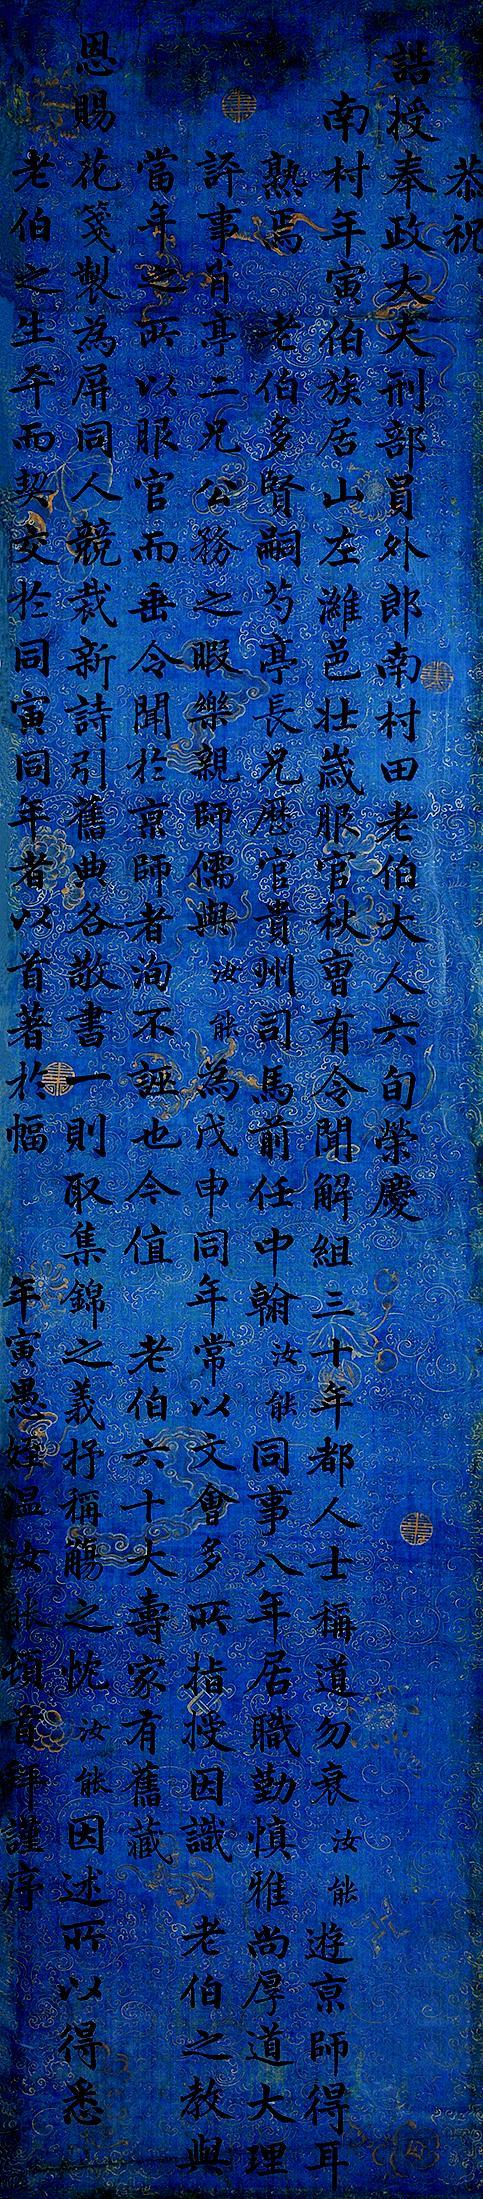 恭祝
誥授奉政大夫刑部員外郎南村田老伯大人六旬榮慶
南村年寅伯族居山左濰邑壯歲服官秋曺有令聞解組三十年都人士稱道勿衰汝能遊京師得耳
熟焉 老伯多賢嗣芍亭長兄歷官貴州司馬前任中翰汝能同事八年居職勤慎雅尚厚道大理
評事肖亭二兄公務之暇樂親師儒與汝能為戊申同年常以文會多所指授因識 老伯之教與
當年之所以服官而垂令聞於京師者洵不誣也今值 老伯六十大壽家有舊藏
恩賜花箋製為屏同人競裁新詩引舊典各敬書一則取集錦之義抒稱觴之忱汝能因述所以得悉
老伯之生平而契交於同寅同年者以首著於幅 年寅愚姪温汝能頓首拜謹序